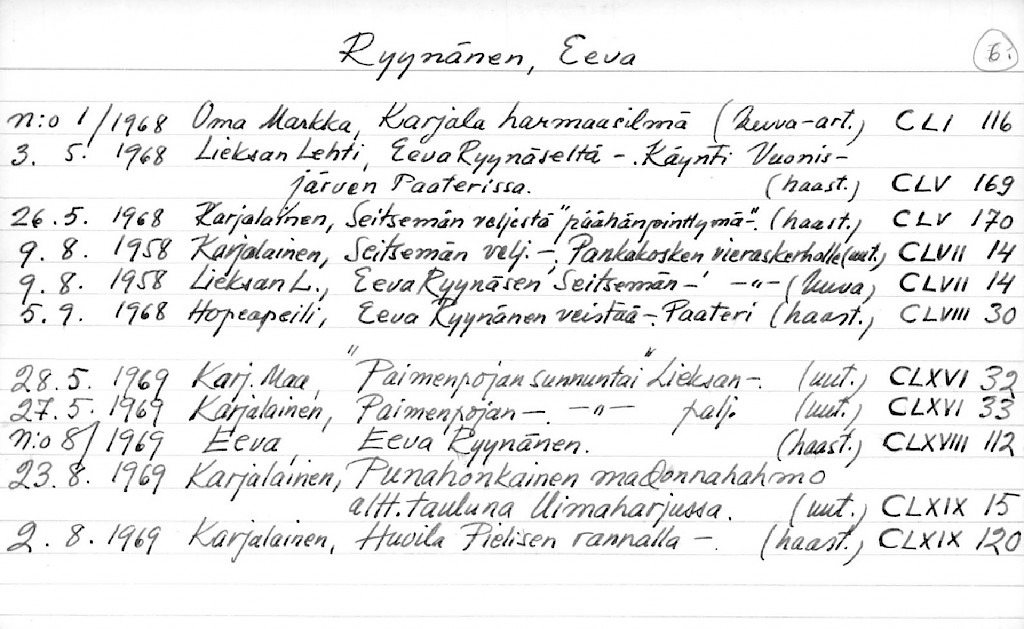 Ryynänen, Eeva 6.
n:o 1/1968 Oma Markka, Karjala harmaasilmä (kuva-art.) CLI 116
3. 5. 1968 Lieksan Lehti, Eeva Ryynäseltä -. Käynti Vuonis-
järven Paaterissa. (haast.) CLV 169
26. 5. 1968 Karjalainen, Seitsemän veljestä "päähänpinttymä". (haast.) CLV 170
9. 8. 1958 Karjalainen, Seitsemän velj. -, Pankakosken vieraskerholle (uut.) CLVII 14
9. 8. 1958 Lieksan L., Eeva Ryynäsen Seitsemän - -"- (kuva) CLVII 14
5. 9. 1968 Hopeapeili, Eeva Ryynänen veistää -. Paateri (haast.) CLVIII 30
28. 5. 1969 Karj. Maa, "Paimenpojan sunnuntai" Lieksan -. (uut.) CLXVI 32
27. 5. 1969 Karjalainen, Paimenpojan -. -"- palj. (uut.) CLXVI 33
n:o 8/1969 Eeva, Eeva Ryynänen. (haast.) CLXVIII 112
23. 8. 1969 Karjalainen, Punahonkainen madonnahahmo
altt.tauluna Uimaharjussa. (uut.) CLXIX 15
2. 8. 1969 Karjalainen, Huvila Pielisen rannalla -. (haast.) CLXIX 120